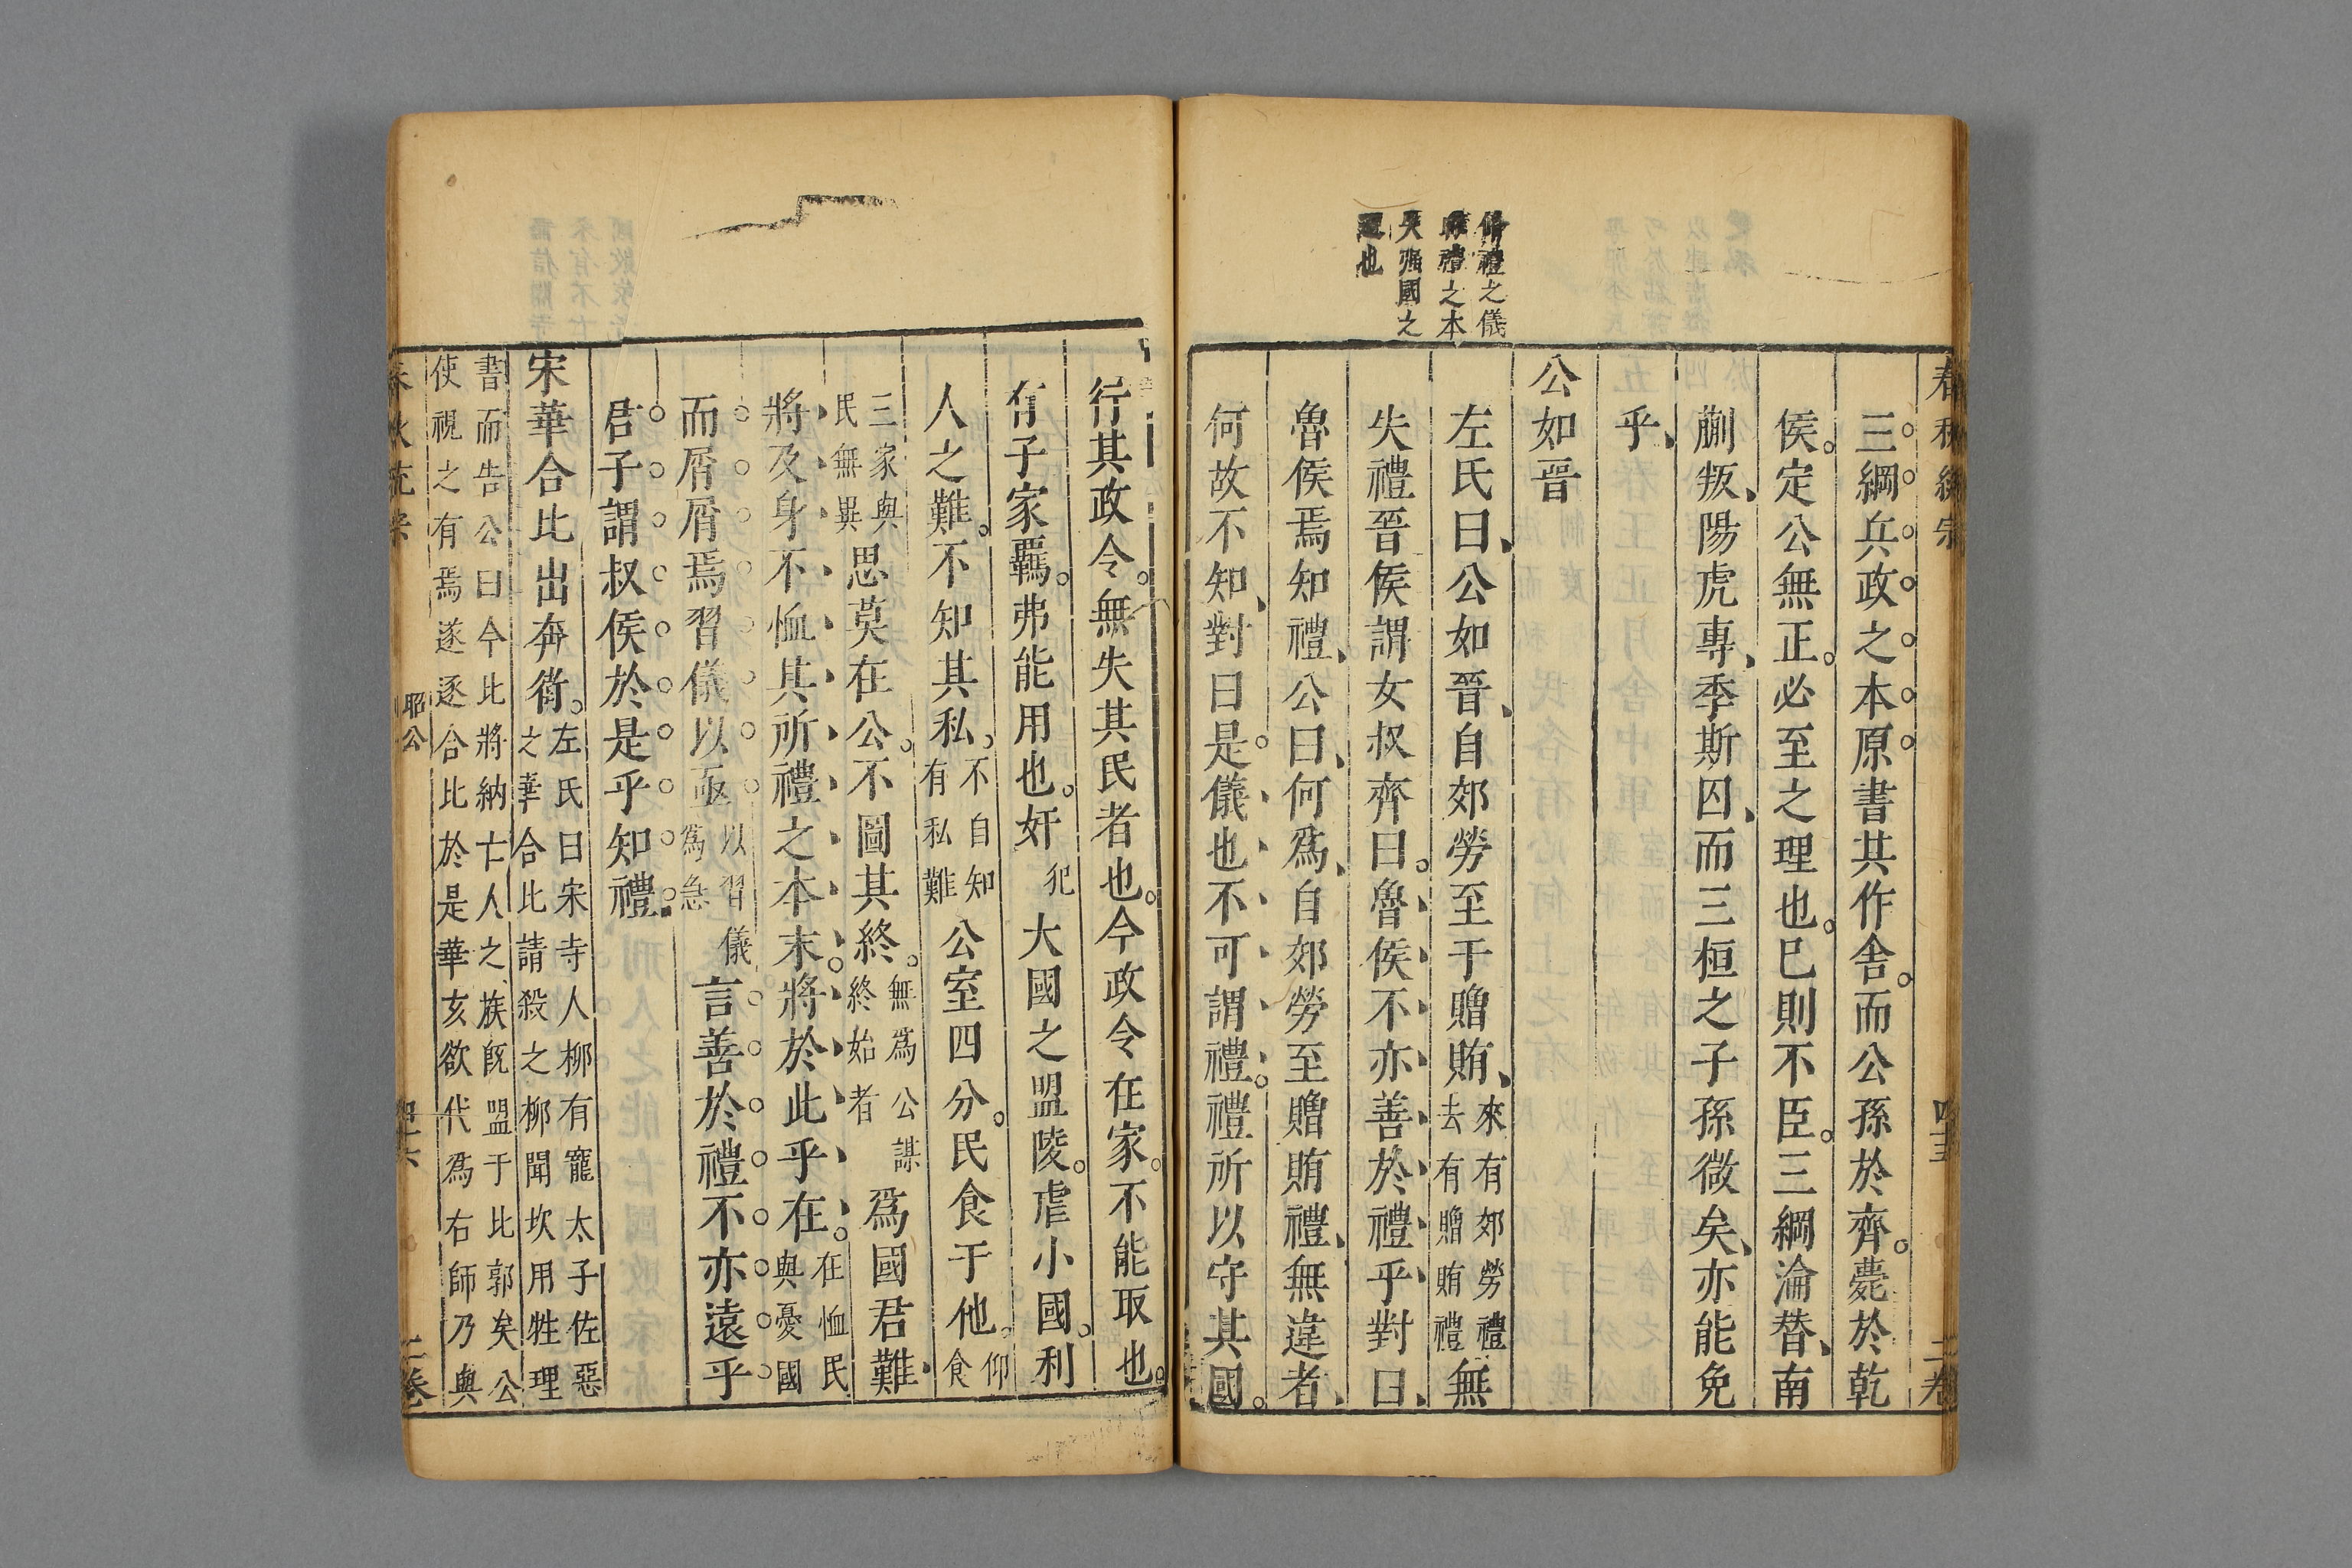 三綱兵政之本原書其作舍而公孫於齊薨於乾
侯定公無正必至之理也巳則不臣三綱淪替南
蒯叛陽虎專季斯囚而三桓之子孫微矣亦能免
乎
公如晉
左氏曰公如晉自郊勞至于贈賄來有郊勞禮去有贈賄禮無
失禮晉侯謂女叔齊曰魯侯不亦善於禮乎對曰
魯侯焉知禮公曰何爲自郊勞至贈賄禮無違者
何故不知對曰是儀也不可謂禮禮所以守其國
脩禮之儀
禮之本
失強國之
也
行其政令無失其民者也今政令在家不能取也
有子家羈弗能用也奸犯大國之盟陵虐小國利
人之難不知其私不自知有私難公室四分民食于他仰食
三家與民無異思莫在公不圖其終無爲公謀終始者爲國君難
將及身不恤其所禮之本末將於此乎在在恤民與憂國
而屑屑焉習儀以亟以習儀爲急言善於禮不亦遠乎
君子謂叔侯於是乎知禮
宋華合比出奔衛左氏曰宋寺人柳有寵太子佐惡
之華合比請殺之柳聞坎用牲理
書而告公曰合比將納亡人之族既盟于北郭矣公
使視之有焉遂逐合比於是華亥欲代爲右師乃與
昭公